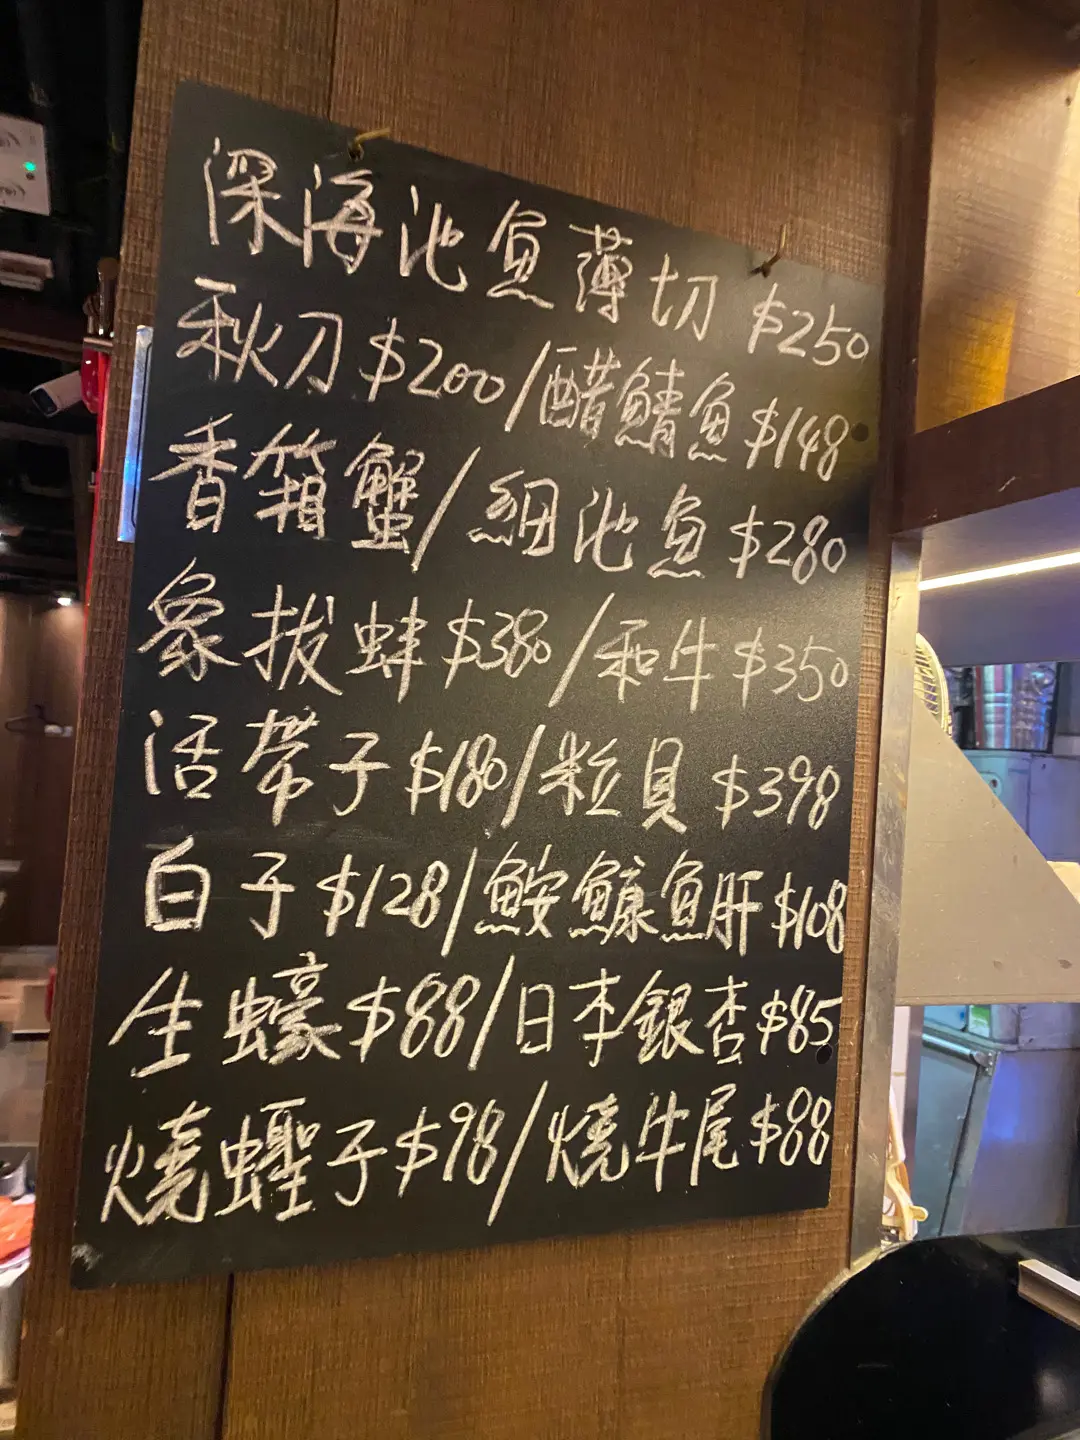 深海池魚薄切 $250
秋刀 $200/醋鯖魚 $148
香箱蟹/細池魚 $280
象拔蚌 $380/和牛 $350
活帶子 $180/粒貝 $398
白子 $128/鮟鱇魚肝 $108
生蠔 $88/日本銀杏 $85
燒蟶子 $98/燒牛尾 $88